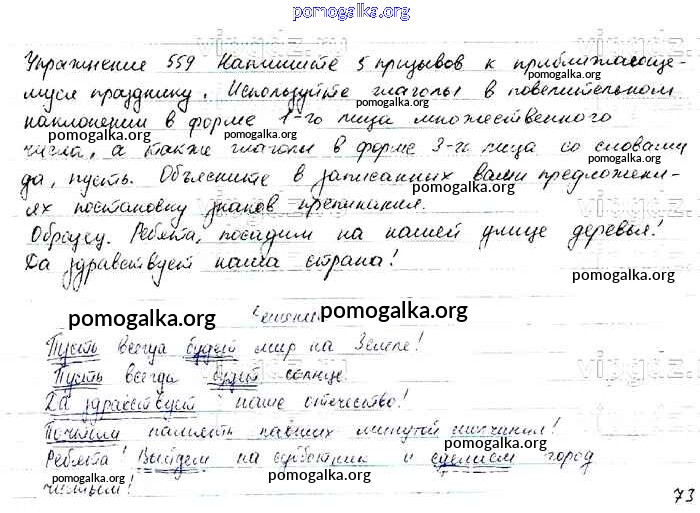 pomogalka.org
Упражнение 559 Напишите 5 призывов к приближающе-
pomogalka.org
муся празднику. Используйте глаголы в повелительном
наклонении в форме 1-го лица множественного
pomogalka.org pomogalka.org pomogalka.org
числа, а также глаголы в форме 3-го лица со словами
pomogalka.org
да, пусть. Объясните в записанных вами предложени-
pomogalka.org
ях постановку знаков препинания.
Образец. Ребята, посадим на нашей улице деревья!
Да здравствует наша страна!
pomogalka.org
pomogalka.org pomogalka.org
Пусть всегда будет мир на Земле!
Пусть всегда будет солнце.
pomogalka.org
Да здравствует наше отечество!
Почтим память павших минутой молчания!
pomogalka.org
Ребята! Выйдем на субботник и сделаем город
pomogalka.org pomogalka.org
чистым!
73